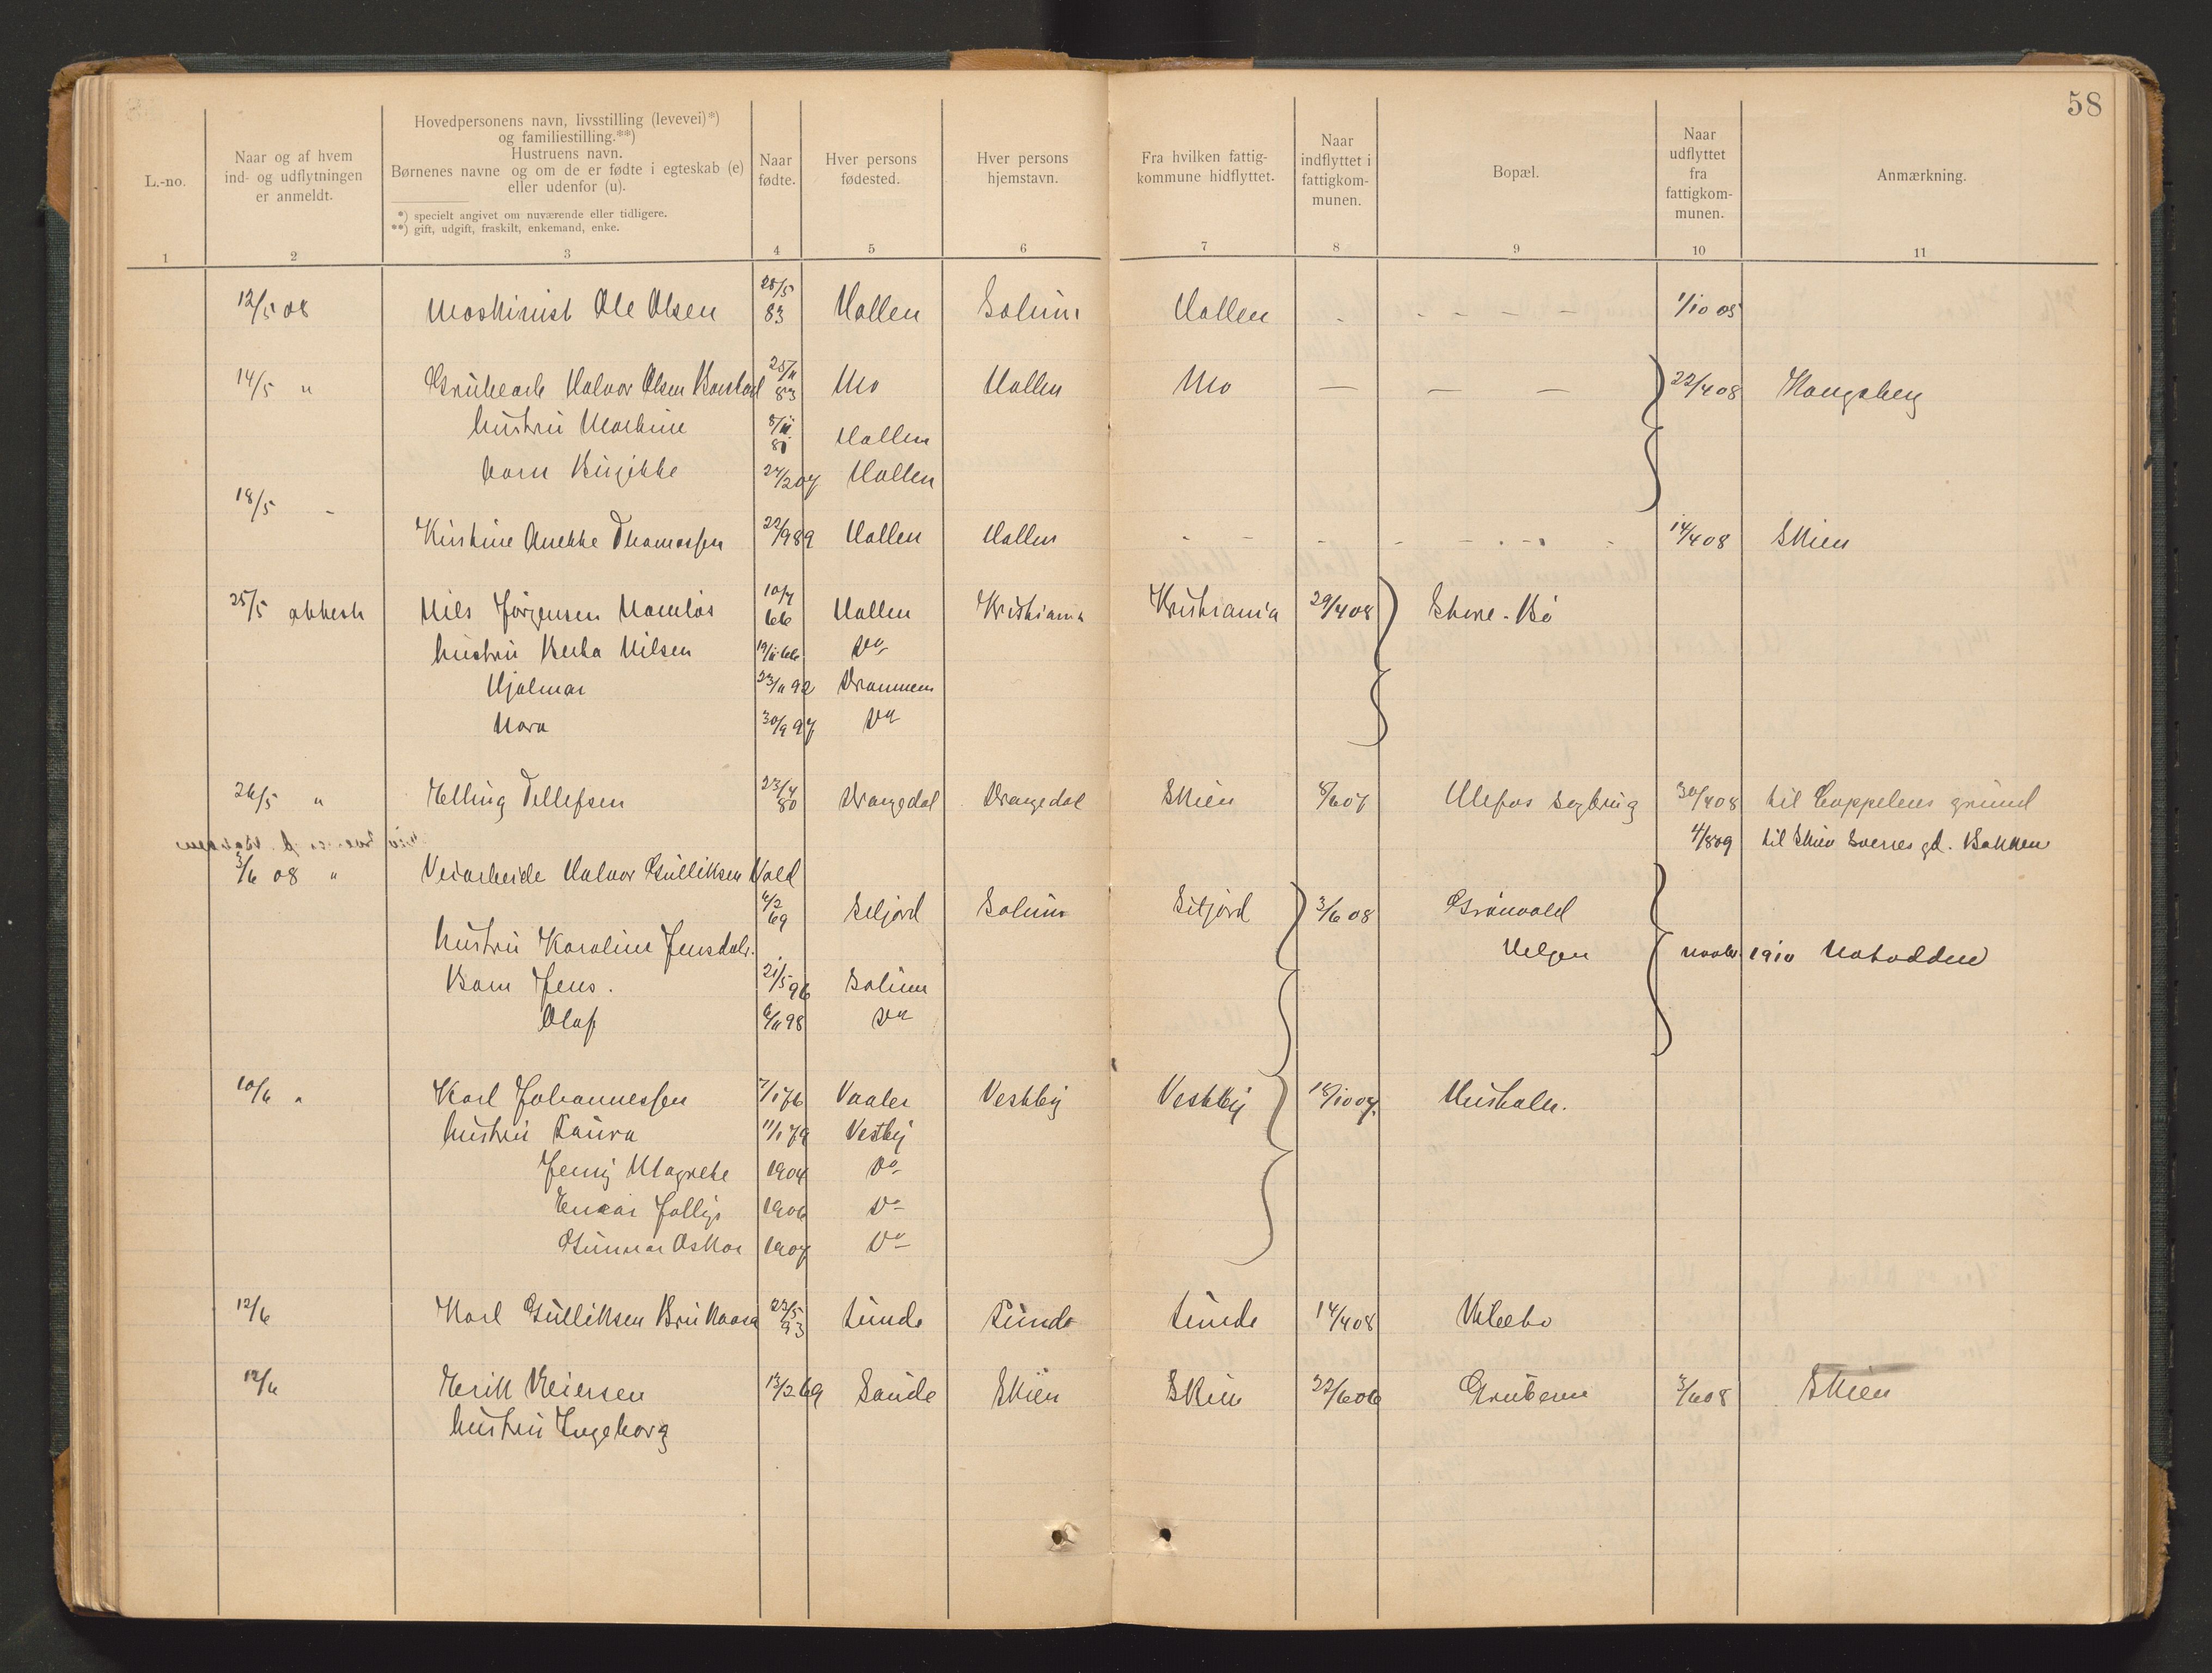 58
L.-no.
Naar og af hvem
ind- og udflytningen
er anmeldt.
Hovedpersonens navn, livsstilling (levevei)*)
og familiestilling.**)
Hustruens navn.
Børnenes navne og om de er fødte i egteskab (e)
eller udenfor (u).
*) specielt angivet om nuværende eller tidligere.
**) gift, udgift, fraskilt, enkemand, enke.
Naar
fødte.
Hver persons
fødested.
Hver persons
hjemstavn.
Fra hvilken fattig-
kommune hidflyttet.
Naar
indflyttet i
fattigkom-
munen.
Bopæl.
Naar
udflyttet
fra
fattigkom-
munen.
Anmærkning.
1 2 3 4 5 6 7 8 9 10 11
12/5 08 Maskinist Ole Olsen 28/5 83 Hollen Solum Hollen - - - - - 1/10 05
14/5 " Grubearb Halvor Olsen 25/11 83 Mo Hollen Mo — — — 22/4 08 Kongsberg
hustru Hollen
barn Birgitte 24/2 07 Hollen
18/5 -
Kirstine Anette Thomassen 22/9 89 Hollen Hollen - - - - - 14/4 08 Skien
25/5 attest Nils Jørgensen Namløs 10/7 66 Hollen Kristiania Kristiania 29/4 08 Store-Bø
hustru Berta Nilsen 19/11 66 Do
Hjalmar 23/11 92 Drammen
Nora 30/9 97 Do
26/5 " Elling Tellefsen 23/4 80 Drangedal Drangedal Skien 8/6 07 Ulefos sagbrug 30/4 08 til Cappelens grund
4/8 09 til Skien Sverres gd. Bakken
3/6 08 " Veiarbeide Halvor Gulliksen Vold
6/2 69 Seljord Solum Sitjord 3/6 08 Grønvold
hustru Karoline Jensdatr. Helgen 1910 Notodden
Barn Jens. 21/5 96 Solum
Olaf 6/11 98 Do
10/6 " Karl Johannessen 7/1 76 Vaaler Vestby Vestby 18/10 07.
hustru Laura 11/1 79 Vestby
Jenny Magrete 1904 Do
Einar 1906 Do
Gunnar Oskar 1907 Do
12/6 Karl Gulliksen Brukaasa 22/5 93 Lunde Lunde Lunde 14/4 08
12/6 Erik Reiersen 13/2 69 Saude Skien Skien 22/6 06 Gruberne 3/6 08 Skien
hustru Ingeborg